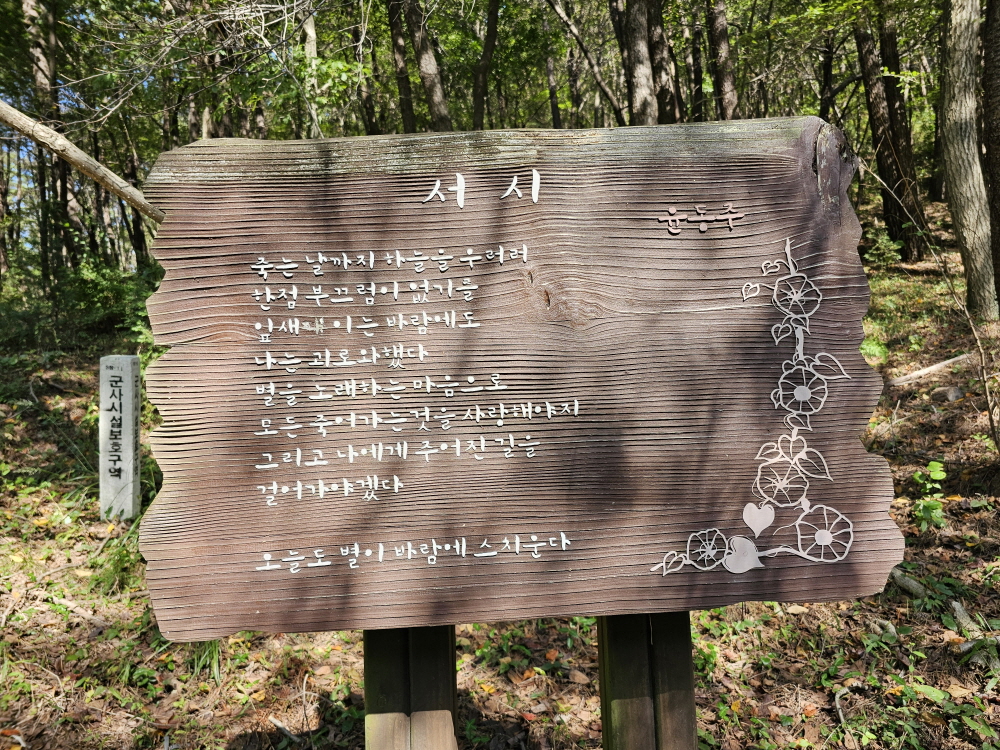 서 시
윤동주
죽는 날까지 하늘을 우러러
한점 부끄럼이 없기를
잎새에 이는 바람에도
나는 괴로와했다
별을 노래하는 마음으로
모든 죽어가는것을 사랑해야지
그리고 나에게 주어진 길을
걸어가야겠다
오늘도 별이 바람에 스치운다
군사시설보호구역